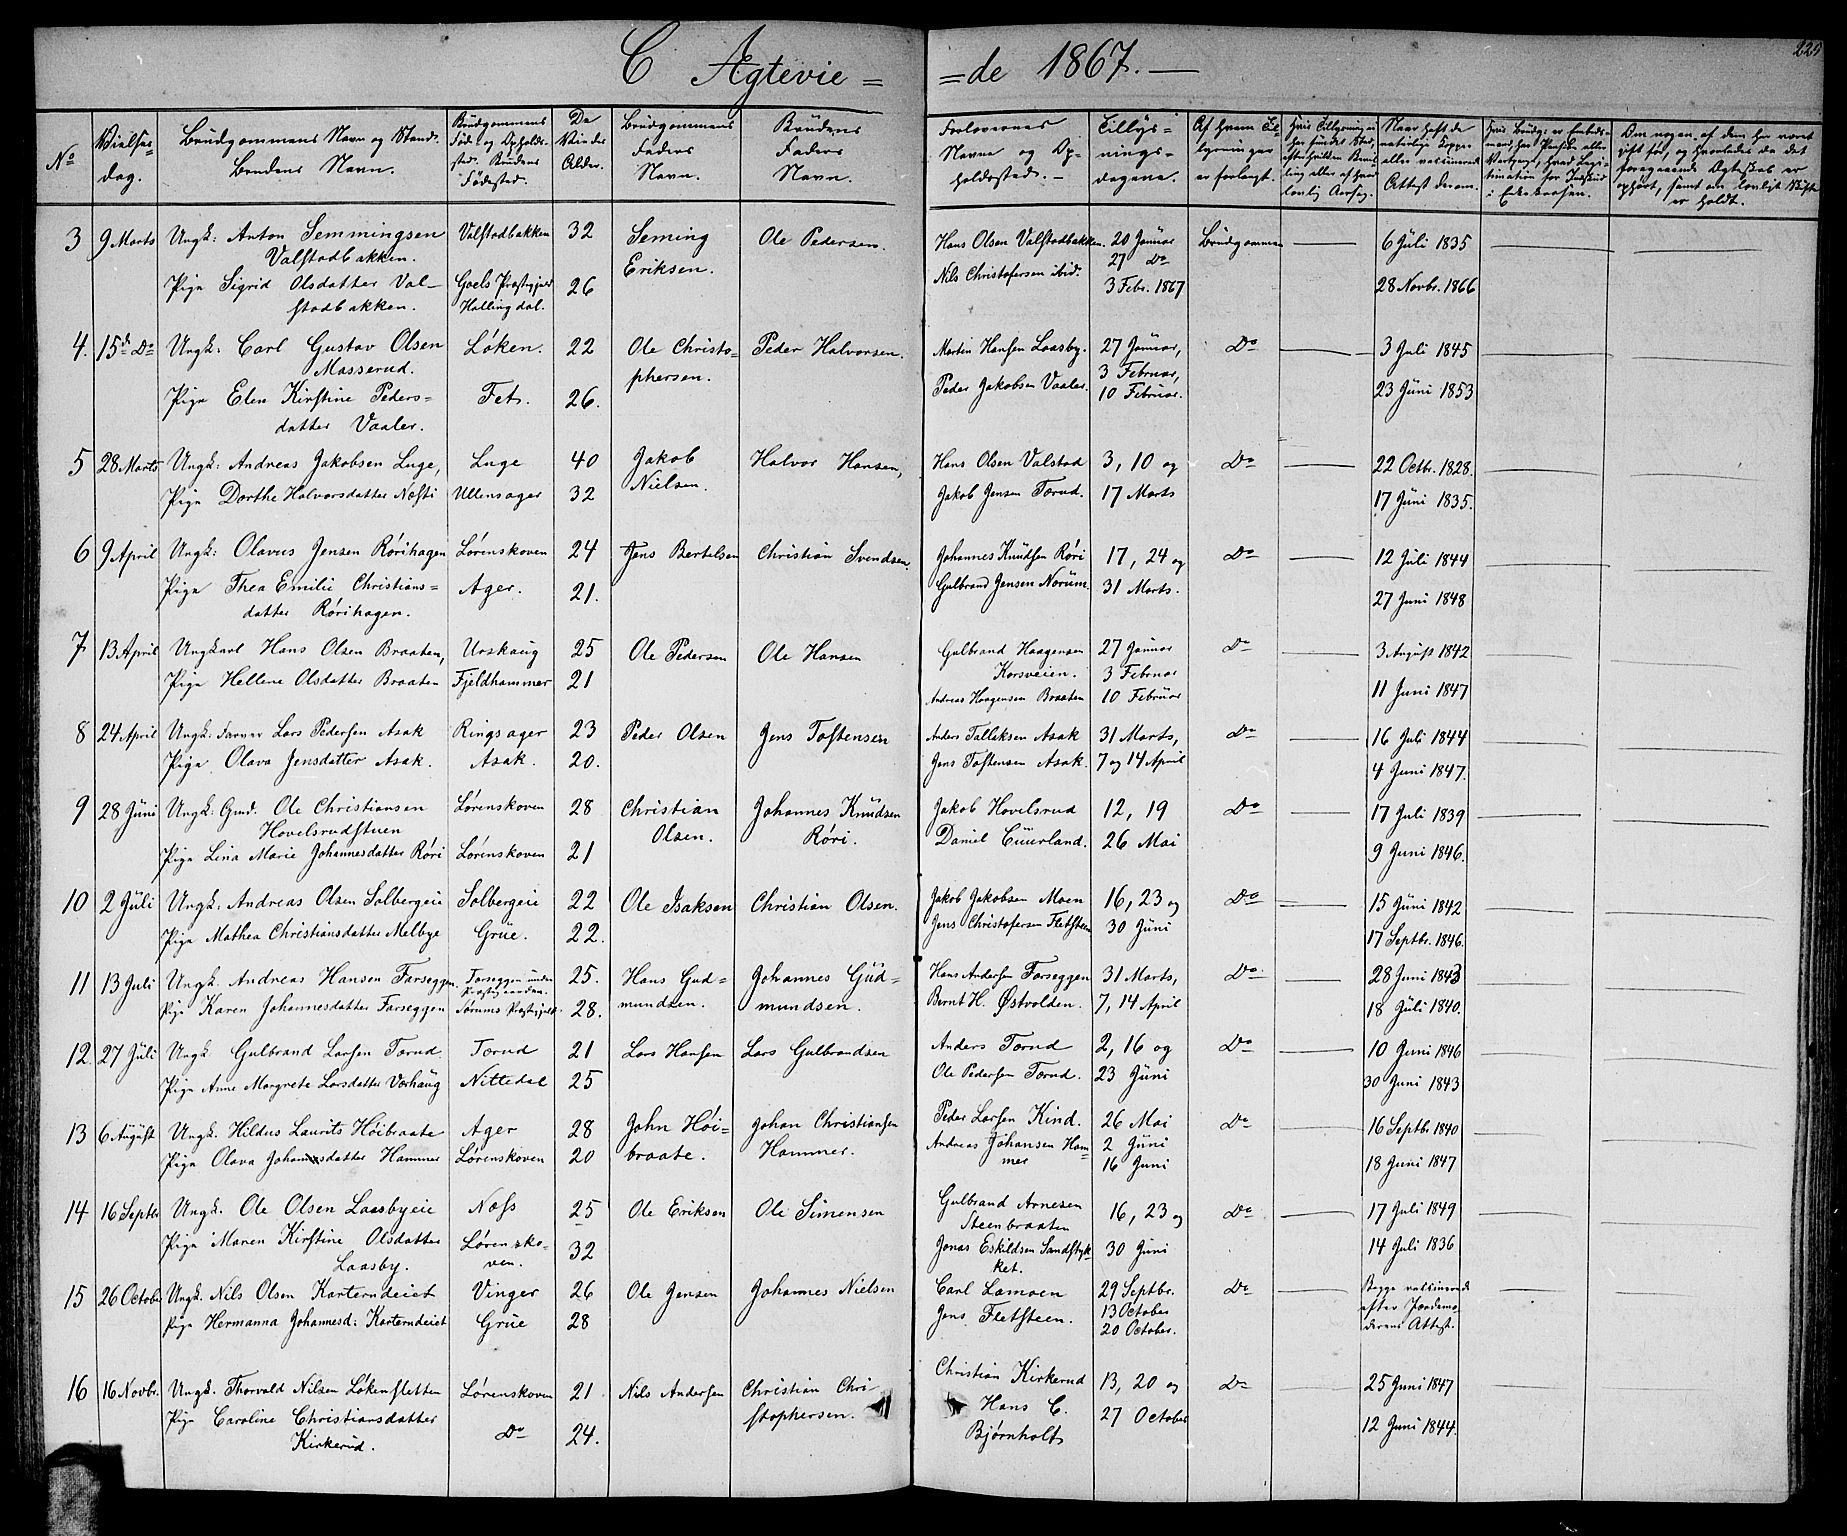 C Ægtevie=
=de 1867.
225
No
Vielses-
dag.
Brudgommens Navn og Stand.
Brudens Navn.
Brudgommens
Føde- og Opholds-
sted. Brudens
Fødested.
De
Viedes
Alder.
Brudgommens
Faders
Navn.
Brudens
Faders
Navn.
Forlovernes
Navne og Op-
holdssted.
Tillys-
nings-
dagene.
Af hvem Til-
lysninger
er forlangt.
Naar haft de
naturlige Kopper
eller vaccinerede
Attest derom.
3 9 Marts Ungk: Anton Semmingsen Valstadbakken 32 Seming Ole Pedersen. Hans Olsen Valstadbakken. 20 Januar Brudgommen 6 Juli 1835
Valstadbakken. Eriksen. 27 Do
Pige Sigrid Olsdatter Val- Goels Præstegjeld 26 Nils Christofersen ibid. 3 Febr. 1867 28 Novbr. 1866
stadbakken. Hallingdal.
4. 15de Do Ungk: Carl Gustav Olsen Løken. 22 Ole Christo- Peder Halvorsen. Martin Hansen Laasby. 27 Januar, Do 3 Juli 1845
Masserud. phersen. 3 Februar,
Pige Elen Kirstine Peders- Fet. 26. Peder Jakobsen Vaaler. 10 Februar. 23 Juni 1853
datter Vaaler.
5 28 Marts Ungk: Andreas Jakobsen Luge, Luge 40 Jakob Halvor Hansen, Hans Olsen Valstad 3, 10 og Do 22 Octbr. 1828.
Pige Dorthe Halvorsdatter Nosti Ullensager 32 Nielsen. Jakob Jensen Torud. 17 Marts 17 Juni 1835.
6 9 April Ungk: Olavus Jensen Rørihagen Lørenskoven 24 Jens Bertelsen Christian Svendsen. Johannes Knudsen Røri 17, 24 og Do 12 Juli 1844
Pige Thea Emilie Christians- Ager. 21. Gulbrand Jensen Norum. 31 Marts. 27 Juni 1848
datter Rørihagen.
7 13 April Ungkarl Hans Olsen Braaten, Urskaug 25 Ole Pedersen Ole Hansen Gulbrand Haagensen 27 Januar Do 3 August 1842
Korsveien. 3 Februar
Pige Hellene Olsdatter Braaten Fjeldhammer 21 Andreas Haagensen Braaten 10 Februar 11 Juni 1847
8 24 April Ungk: Farver Lars Pedersen Asak Ringsager 23 Peder Olsen Jens Toftensen Anders Tallaksen Asak 31 Marts, Do 16 Juli 1844
Pige Olava Jensdatter Asak. Asak. 20. Jens Toftensen Asak. 7 og 14 April 4 Juni 1847.
9 28 Juni Ungk: Gmd. Ole Christiansen Lørenskoven 28 Christian Johannes Knudsen Jakob Hovelsrud 12, 19 Do 17 Juli 1839
Hovelsrudstuen Olsen. Røri. Daniel Cuurland. 26 Mai
Pige Lina Marie Johannesdatter Røri Lørenskoven 21 9 Juni 1846.
10 2 Juli Ungk: Andreas Olsen Solbergeie Solbergeie 22 Ole Isaksen Christian Olsen. Jakob Jakobsen Moen 16, 23 og Do 15 Juni 1842
Pige Mathea Christiansdatter Melbye Grue. 22. Jens Christofersen Fletsteen 30 Juni 17 Septbr. 1846.
11 13 Juli Ungk. Andreas Hansen Farseggen. Farseggen under 25. Hans Gud- Johannes Gud- Hans Andersen Farseggen 31 Marts, Do 28 Juni 1843
Præstegaarden.
Pige Karen Johannesdatter Farseggen Sørums Præstegjeld. 28. mundsen. mundsen. Bernt H. Østvolden. 7, 14 April 18 Juli 1840.
12. 27 Juli Ungk. Gulbrand Larsen Torud. Torud 21 Lars Hansen Lars Gulbrandsen Anders Torud 2, 16 og Do 10 Juni 1846
Pige Anne Margrete Larsdatter Varhaug Nittedal 25 Ole Pedersen Torud. 23 Juni 30 Juni 1843
13 6 August Ungk. Hildus Laurits Høibraate Ager 28 John Høi- Johan Christiansen Peder Larsen Kind. 26 Mai Do 16 Septbr 1840
Pige Olava Johannesdatter Hammer Lørenskoven 20 braate. Hammer. Andreas Johansen Ham- 2 Juni
mer 16 Juni 18 Juni 1847
14 16 Septbr Ungk. Ole Olsen Laasbyeie Næss 25 Ole Eriksen Ole Simensen Gulbrand Arnesen 16, 23 og Do 17 Juli 1849
Steenbraaten
Pige Maren Kirstine Olsdatter Lørensko- 32 Jonas Eskildsen Sandstyk- 30 Juni 14 Juli 1836
Laasby. ven. ket.
15 26 October Ungk. Nils Olsen Karterudeiet Vinger 26 Ole Jensen Johannes Nielsen Carl Lamoen 29 Septbr. Do Begge vaccinerede
Pige Hermanna Johannesd: Karterudeiet Grue 28 Jens Fletsteen. 13 October efter Jordemo-
20 October. derens Attest.
16 16 Novbr. Ungk. Thorvald Nilsen Løkensletten Lørenskoven 21 Nils Andersen Christian Chri- Christian Kirkerud 13, 20 og Do 25 Juni 1847
Pige Caroline Christiansdatter Do 24. stophersen. Hans C. 27 October 12 Juni 1844.
Kirkerud. Bjørnholt